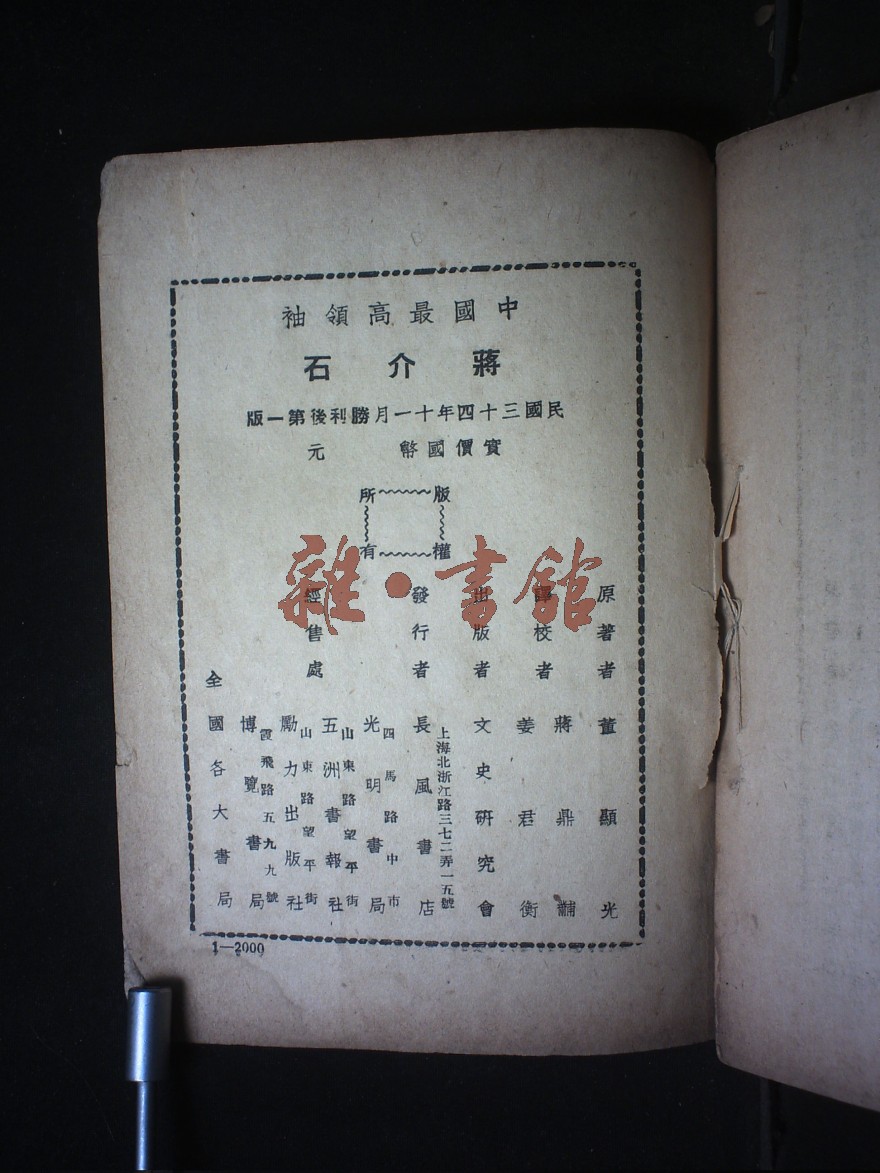 中國最高領袖
蔣介石
民國三十四年十一月勝利後第一版
實價國幣　元
版權所有
原著者　董顯光
校者　蔣鼎黼
姜君衡
出版者　文史研究會
發行者　長風書店
上海北浙江路三七二弄一五號
經售處
光明書局
四馬路中市
五洲書報社
山東路望平街
勵力出版社
山東路望平街
博覽書局
霞飛路五九九號
全國各大書局
1—2000
雜·書館